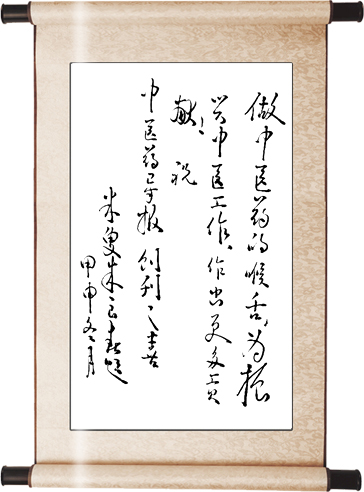 做中医药的喉舌,为振
兴中医工作,作出更多贡
献!祝
中医药导报创刊之喜
米叟朱良春题
甲申冬月